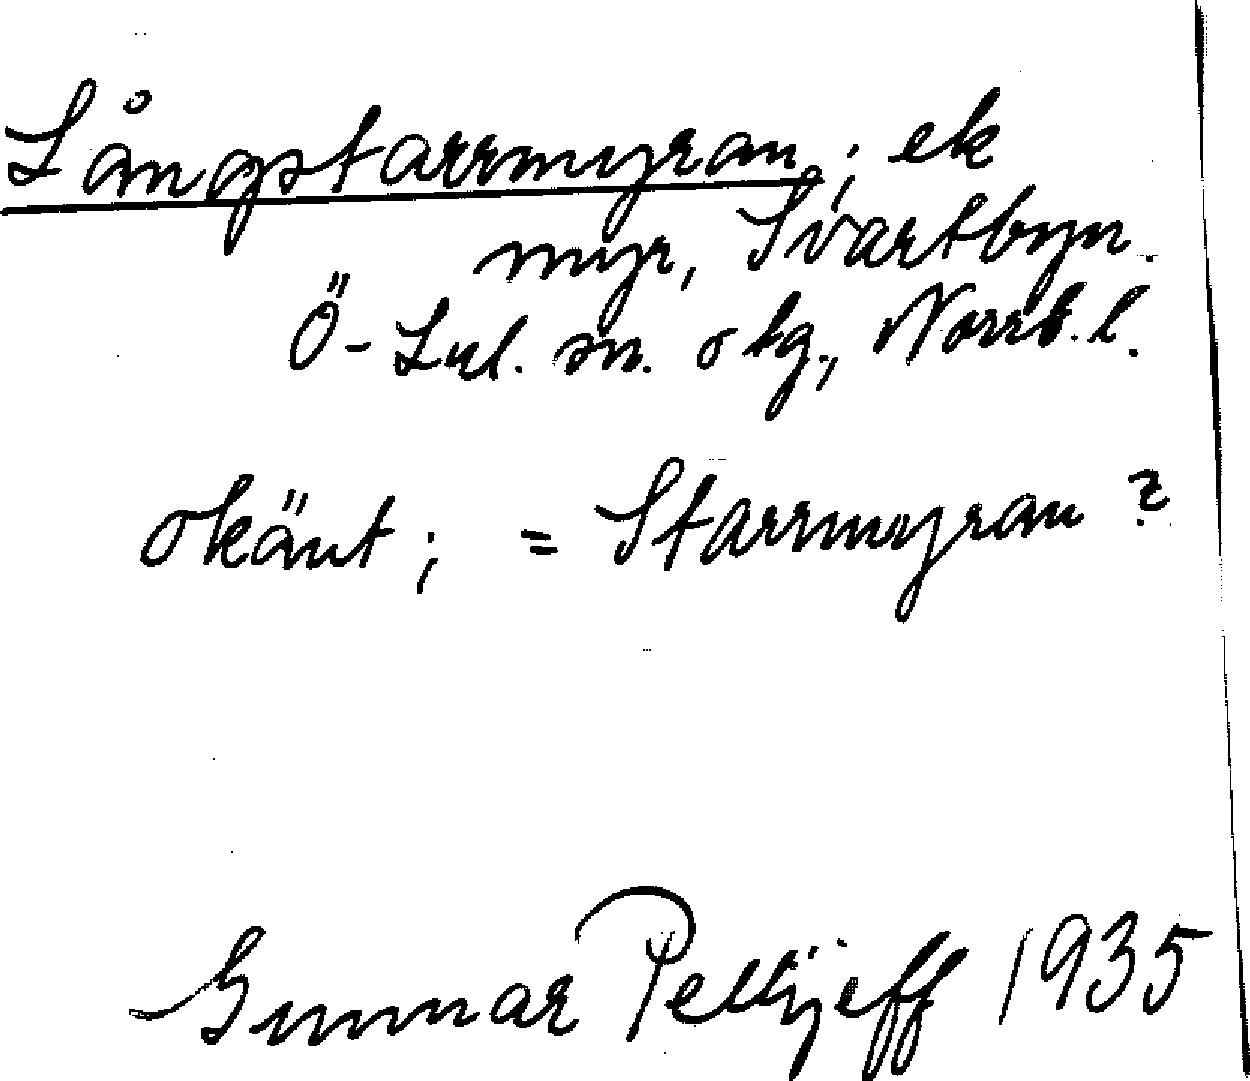 Långstarrmyran; ek
myr, Svartbyn.
Ö-Lul. sn. o tg., Norrb. l.
okänt; = Starrmyran?
Gunnar Pellijeff 1935